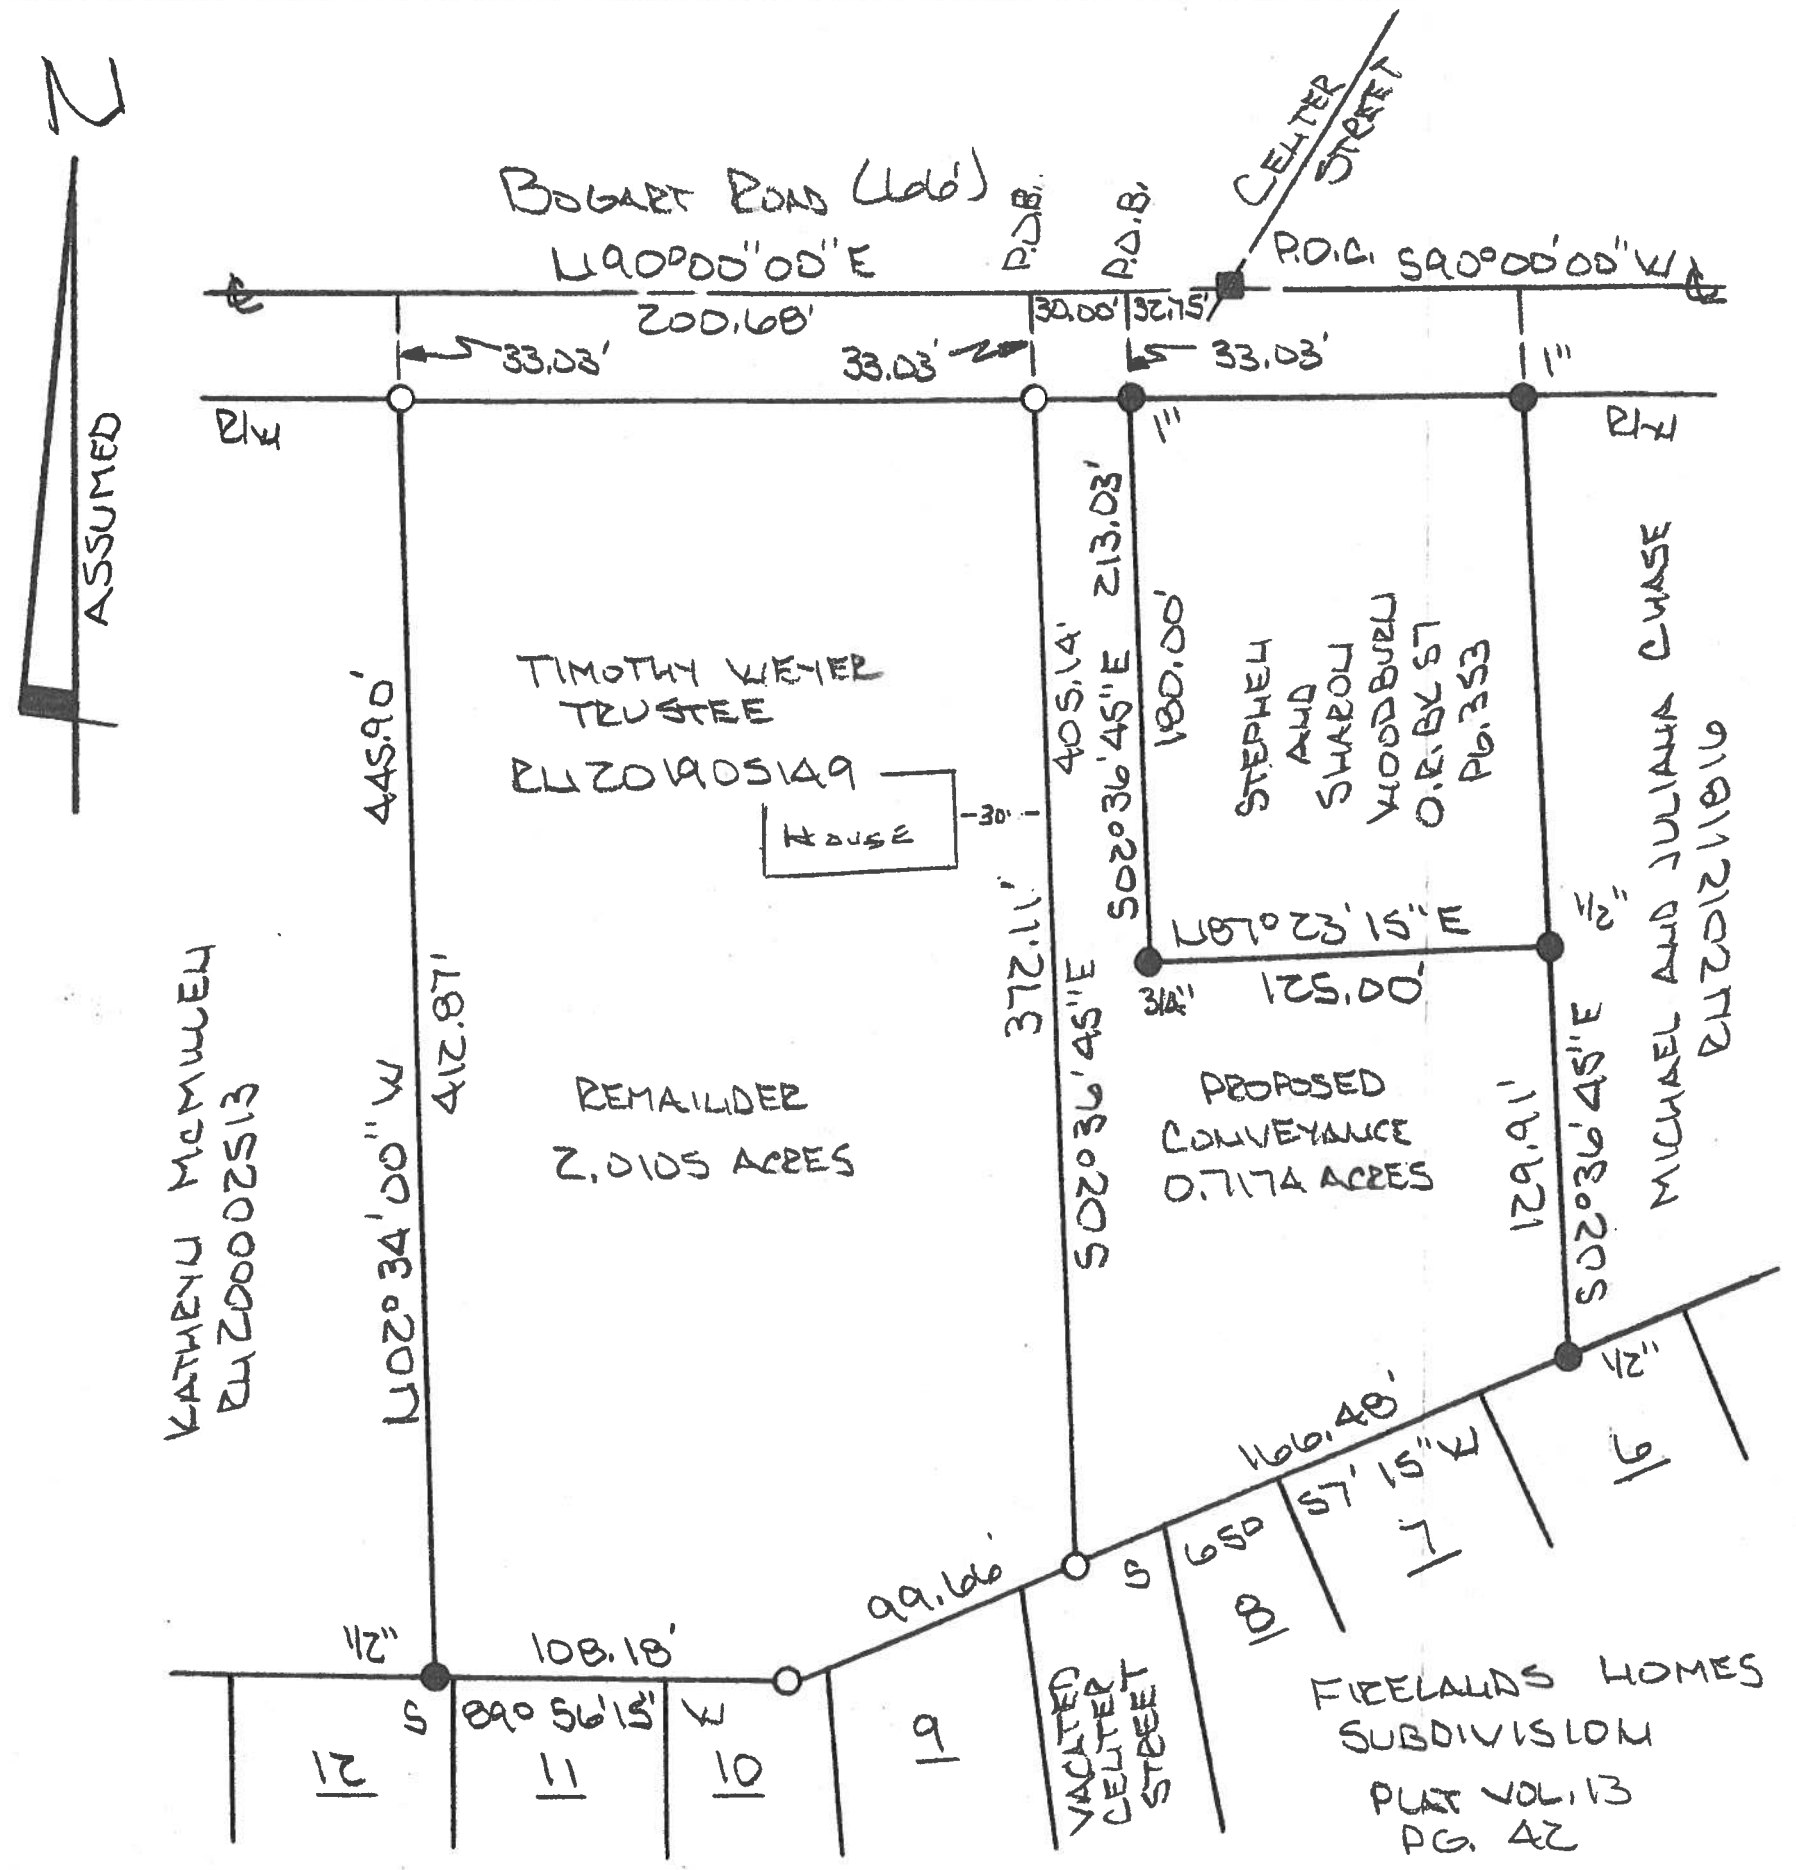 N
ASSUMED
CENTER
STREET
BOGART ROAD (66')
P.O.B.
P.O.B.
N90°00"00"E
P.O.C. S90°00'00"W
℄
℄
200.68'
30.00'
32.75'
33.03'
33.03'
33.03'
1"
R/W
1"
R/W
445.90'
412.87'
N02°34'00"W
KATHRYN McMILLEN
RN200002513
TIMOTHY WEYER
TRUSTEE
RN201905149
HOUSE
30'
405.14'
372.11'
S02°36'45"E
S02°36'45"E 213.03'
180.00'
STEPHEN
AND
SHARON
WOODBURN
O.R.BK 57
PG.353
MICHAEL AND JULIANA CHASE
RN201211816
N87°23'15"E
125.00'
3/4"
1/2"
REMAINDER
2.0105 ACRES
PROPOSED
CONVEYANCE
0.7174 ACRES
129.91'
S02°36'45"E
1/2"
166.48'
S 65° 57' 15" W
99.66'
1/2"
108.18'
S 89° 56'15" W
12
11
10
9
VACATED
CENTER
STREET
8
7
6
FIRELANDS HOMES
SUBDIVISION
PLAT VOL.13
PG. 42